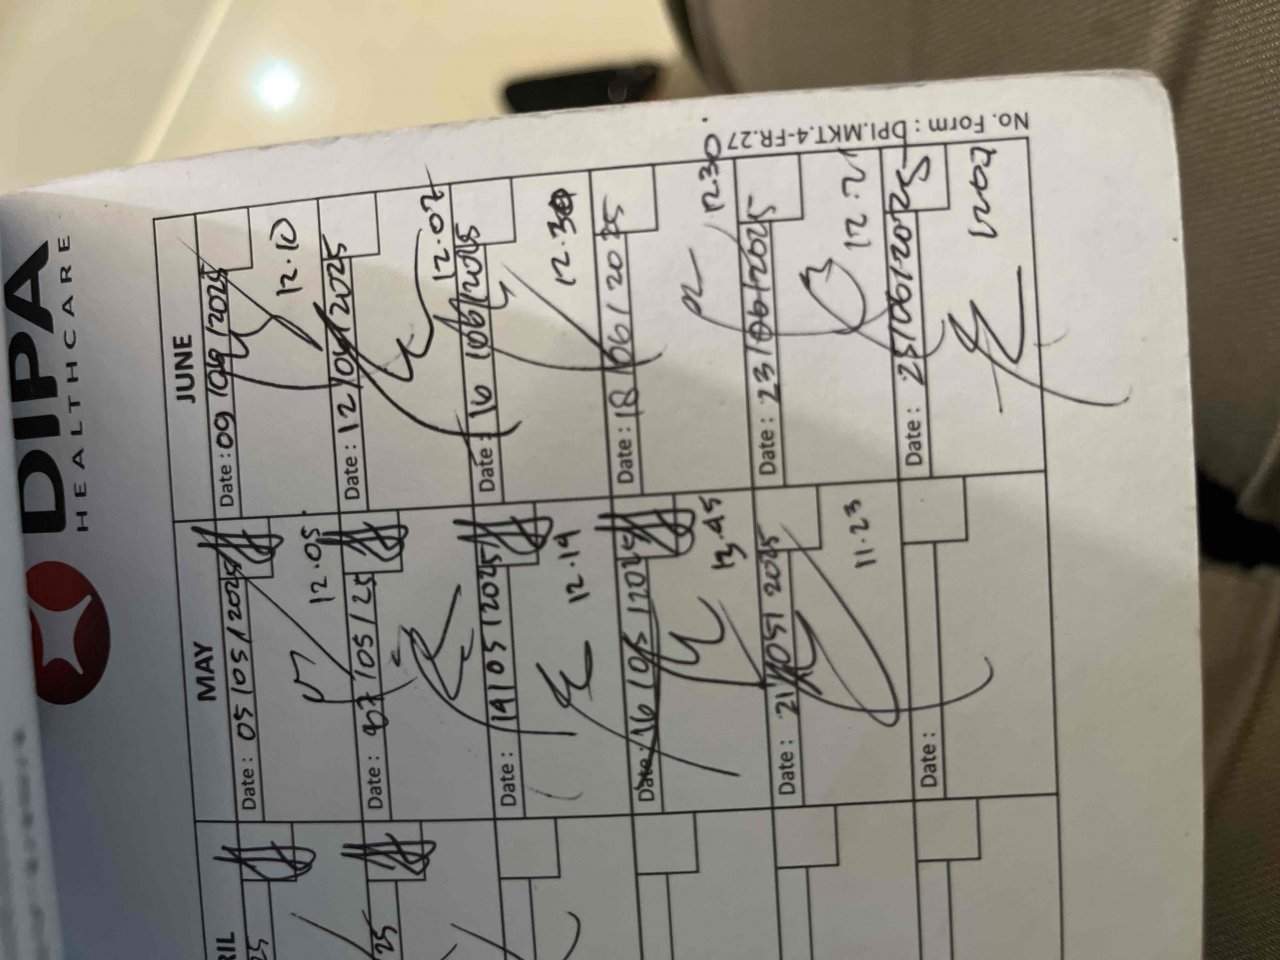 No. Form : DPI.MKT.4-FR.27
DIPA
HEALTHCARE
RIL
25
25
MAY
Date : 05/05/2025
12.05
Date : 07/05/25
Date : 14/05/2025
12.19
Date : 16/05/2025
Date : 21/05/2025
11.23
Date :
JUNE
Date : 09/06/2025
12.10
Date : 12/06/2025
12.02
Date : 16/06/2025
12.30
Date : 18/06/2025
12.30
Date : 23/06/2025
12.21
Date : 25/06/2025